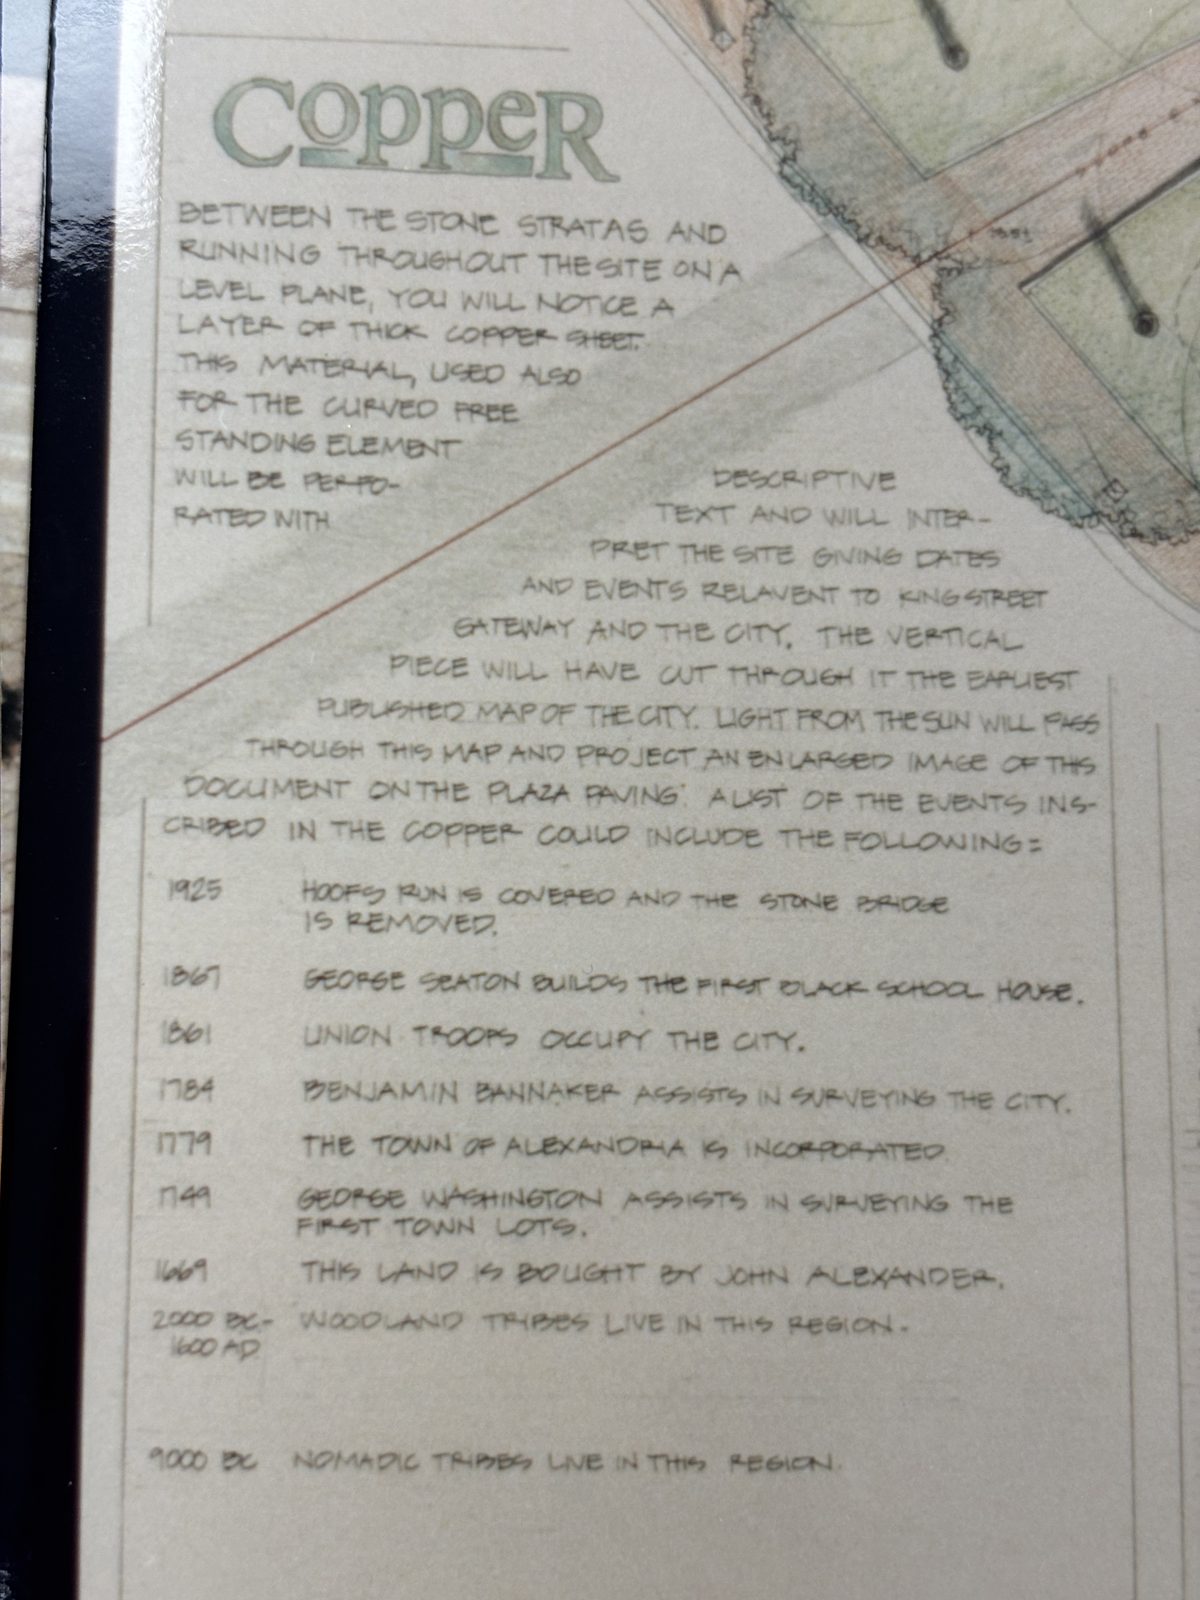 COPPER
BETWEEN THE STONE STRATAS AND
RUNNING THROUGHOUT THE SITE ON A
LEVEL PLANE, YOU WILL NOTICE A
LAYER OF THICK COPPER SHEET.
THIS MATERIAL, USED ALSO
FOR THE CURVED FREE
STANDING ELEMENT
WILL BE PERFO-
RATED WITH
DESCRIPTIVE
TEXT AND WILL INTER-
PRET THE SITE GIVING DATES
AND EVENTS RELAVENT TO KING STREET
GATEWAY AND THE CITY. THE VERTICAL
PIECE WILL HAVE CUT THROUGH IT THE EARLIEST
PUBLISHED MAP OF THE CITY. LIGHT FROM THE SUN WILL PASS
THROUGH THIS MAP AND PROJECT AN ENLARGED IMAGE OF THIS
DOCUMENT ON THE PLAZA PAVING. A LIST OF THE EVENTS INS-
CRIBED IN THE COPPER COULD INCLUDE THE FOLLOWING:
1925 HOOFS RUN IS COVERED AND THE STONE BRIDGE
IS REMOVED.
1867 GEORGE SEATON BUILDS THE FIRST BLACK SCHOOL HOUSE.
1861 UNION TROOPS OCCUPY THE CITY.
1784 BENJAMIN BANNAKER ASSISTS IN SURVEYING THE CITY.
1779 THE TOWN OF ALEXANDRIA IS INCORPORATED.
1749 GEORGE WASHINGTON ASSISTS IN SURVEYING THE
FIRST TOWN LOTS.
1669 THIS LAND IS BOUGHT BY JOHN ALEXANDER.
2000 BC- WOODLAND TRIBES LIVE IN THIS REGION.
1600 AD
9000 BC NOMADIC TRIBES LIVE IN THIS REGION.